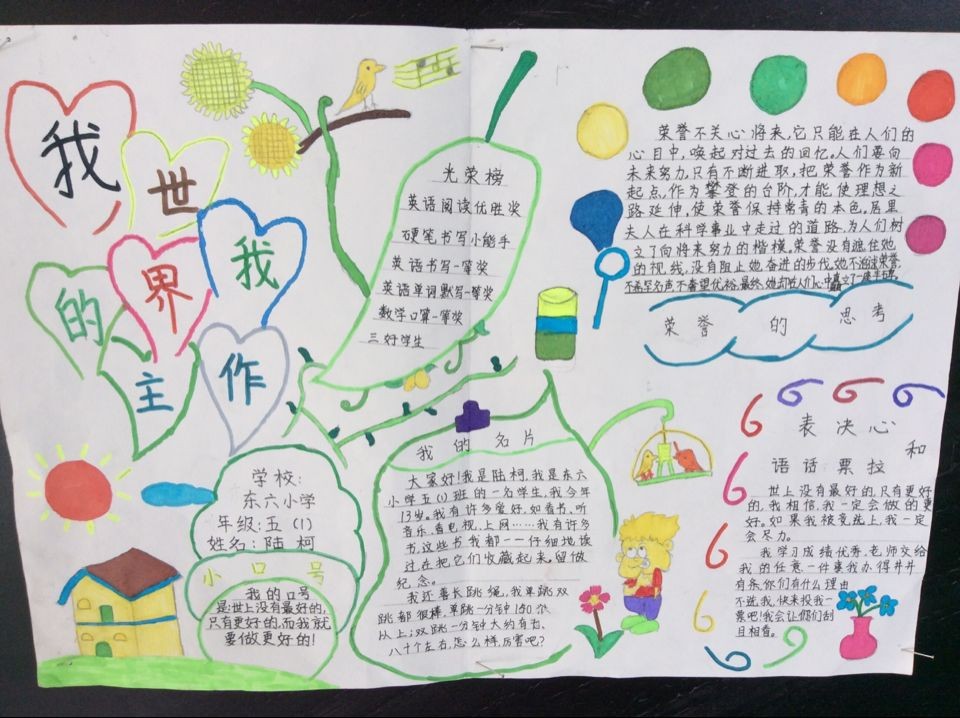 我
世
界
我
的
主
作
光荣榜
英语阅读优胜奖
硬笔书写小能手
英语书写一等奖
英语单词默写一等奖
数学口算一等奖
三好学生
荣誉不关心将来,它只能在人们的
心目中,唤起对过去的回忆。人们要向
未来努力,只有不断进取,把荣誉作为新
起点,作为攀登的台阶,才能使理想之
路延伸,使荣誉保持常青的本色。居里
夫人在科学事业中走过的道路,为人们树
立了向将来努力的楷模。荣誉没有遮住她
的视线,没有阻止她奋进的步代,她不追求荣誉,
荣誉的思考
学校:
东六小学
年级:五(1)
姓名:陆柯
小口号
我的口号
是世上没有最好的,
只有更好的,而我就
要做更好的!
我的名片
大家好!我是陆柯,我是东六
小学五(1)班的一名学生,我今年
13岁。我有许多爱好,如看书、听
音乐、看电视、上网……我有许多
书,这些书我都一一仔细地读
过在把它们收藏起来,留做
纪念。
我还善长跳绳,我单跳双
跳都很棒,单跳一分钟150个
从上;双跳一分钟大约有七、
八十个左右,怎么样,厉害吧?
表决心
和
语话:票拉
世上没有最好的,只有更好
的,我相信,我一定会做的更
好。如果我被竞选上,我一定
会尽力。
我学习成绩优秀,老师交给
我的任意一件事我办得井井
有条,你们有什么理由
不选我,快来投我一
票吧!我会让你们刮
目相看。